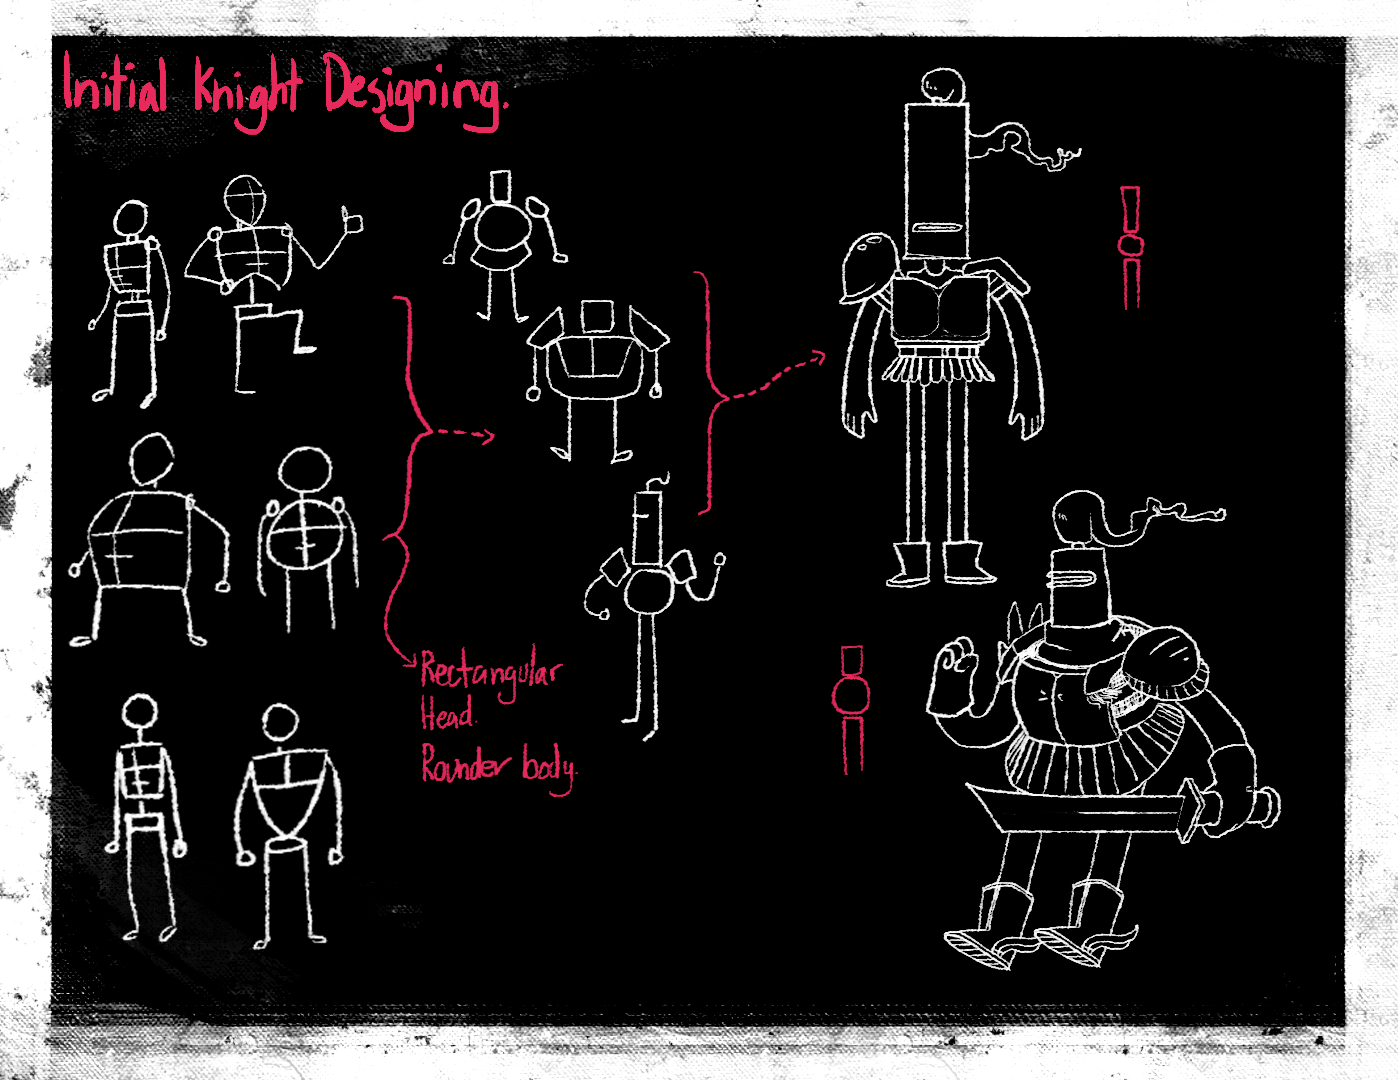 Initial Knight Designing.
Rectangular
Head.
Rounder body.